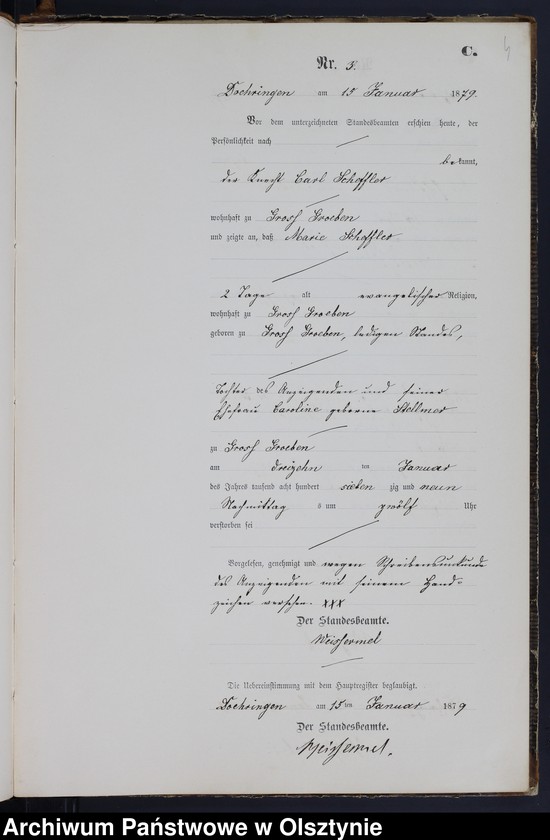 C.
4
Nr. 3.
Doehringen am 15 Januar 1879.
Vor dem unterzeichneten Standesbeamten erschien heute, der
Persönlichkeit nach
bekannt,
der Knecht Carl Scheffler
wohnhaft zu Gross Groeben
und zeigte an, daß Marie Scheffler
2 Tage alt evangelischer Religion,
wohnhaft zu Gross Groeben
geboren zu Gross Groeben, ledigen Standes,
Tochter des Anzeigenden und seiner
Ehefrau Caroline geborne Stellmer
zu Gross Groeben
am dreizehn ten Januar
des Jahres tausend acht hundert sieben zig und neun
Nachmittag s um zwölf Uhr
verstorben sei
Vorgelesen, genehmigt und wegen Schreibensunkunde
des Anzeigenden mit seinem Hand-
zeichen versehen. XXX
Der Standesbeamte.
Weissermel
Die Uebereinstimmung mit dem Hauptregister beglaubigt.
Doehringen am 15 ten Januar 1879
Der Standesbeamte.
Weissermel.
Archiwum Państwowe w Olsztynie